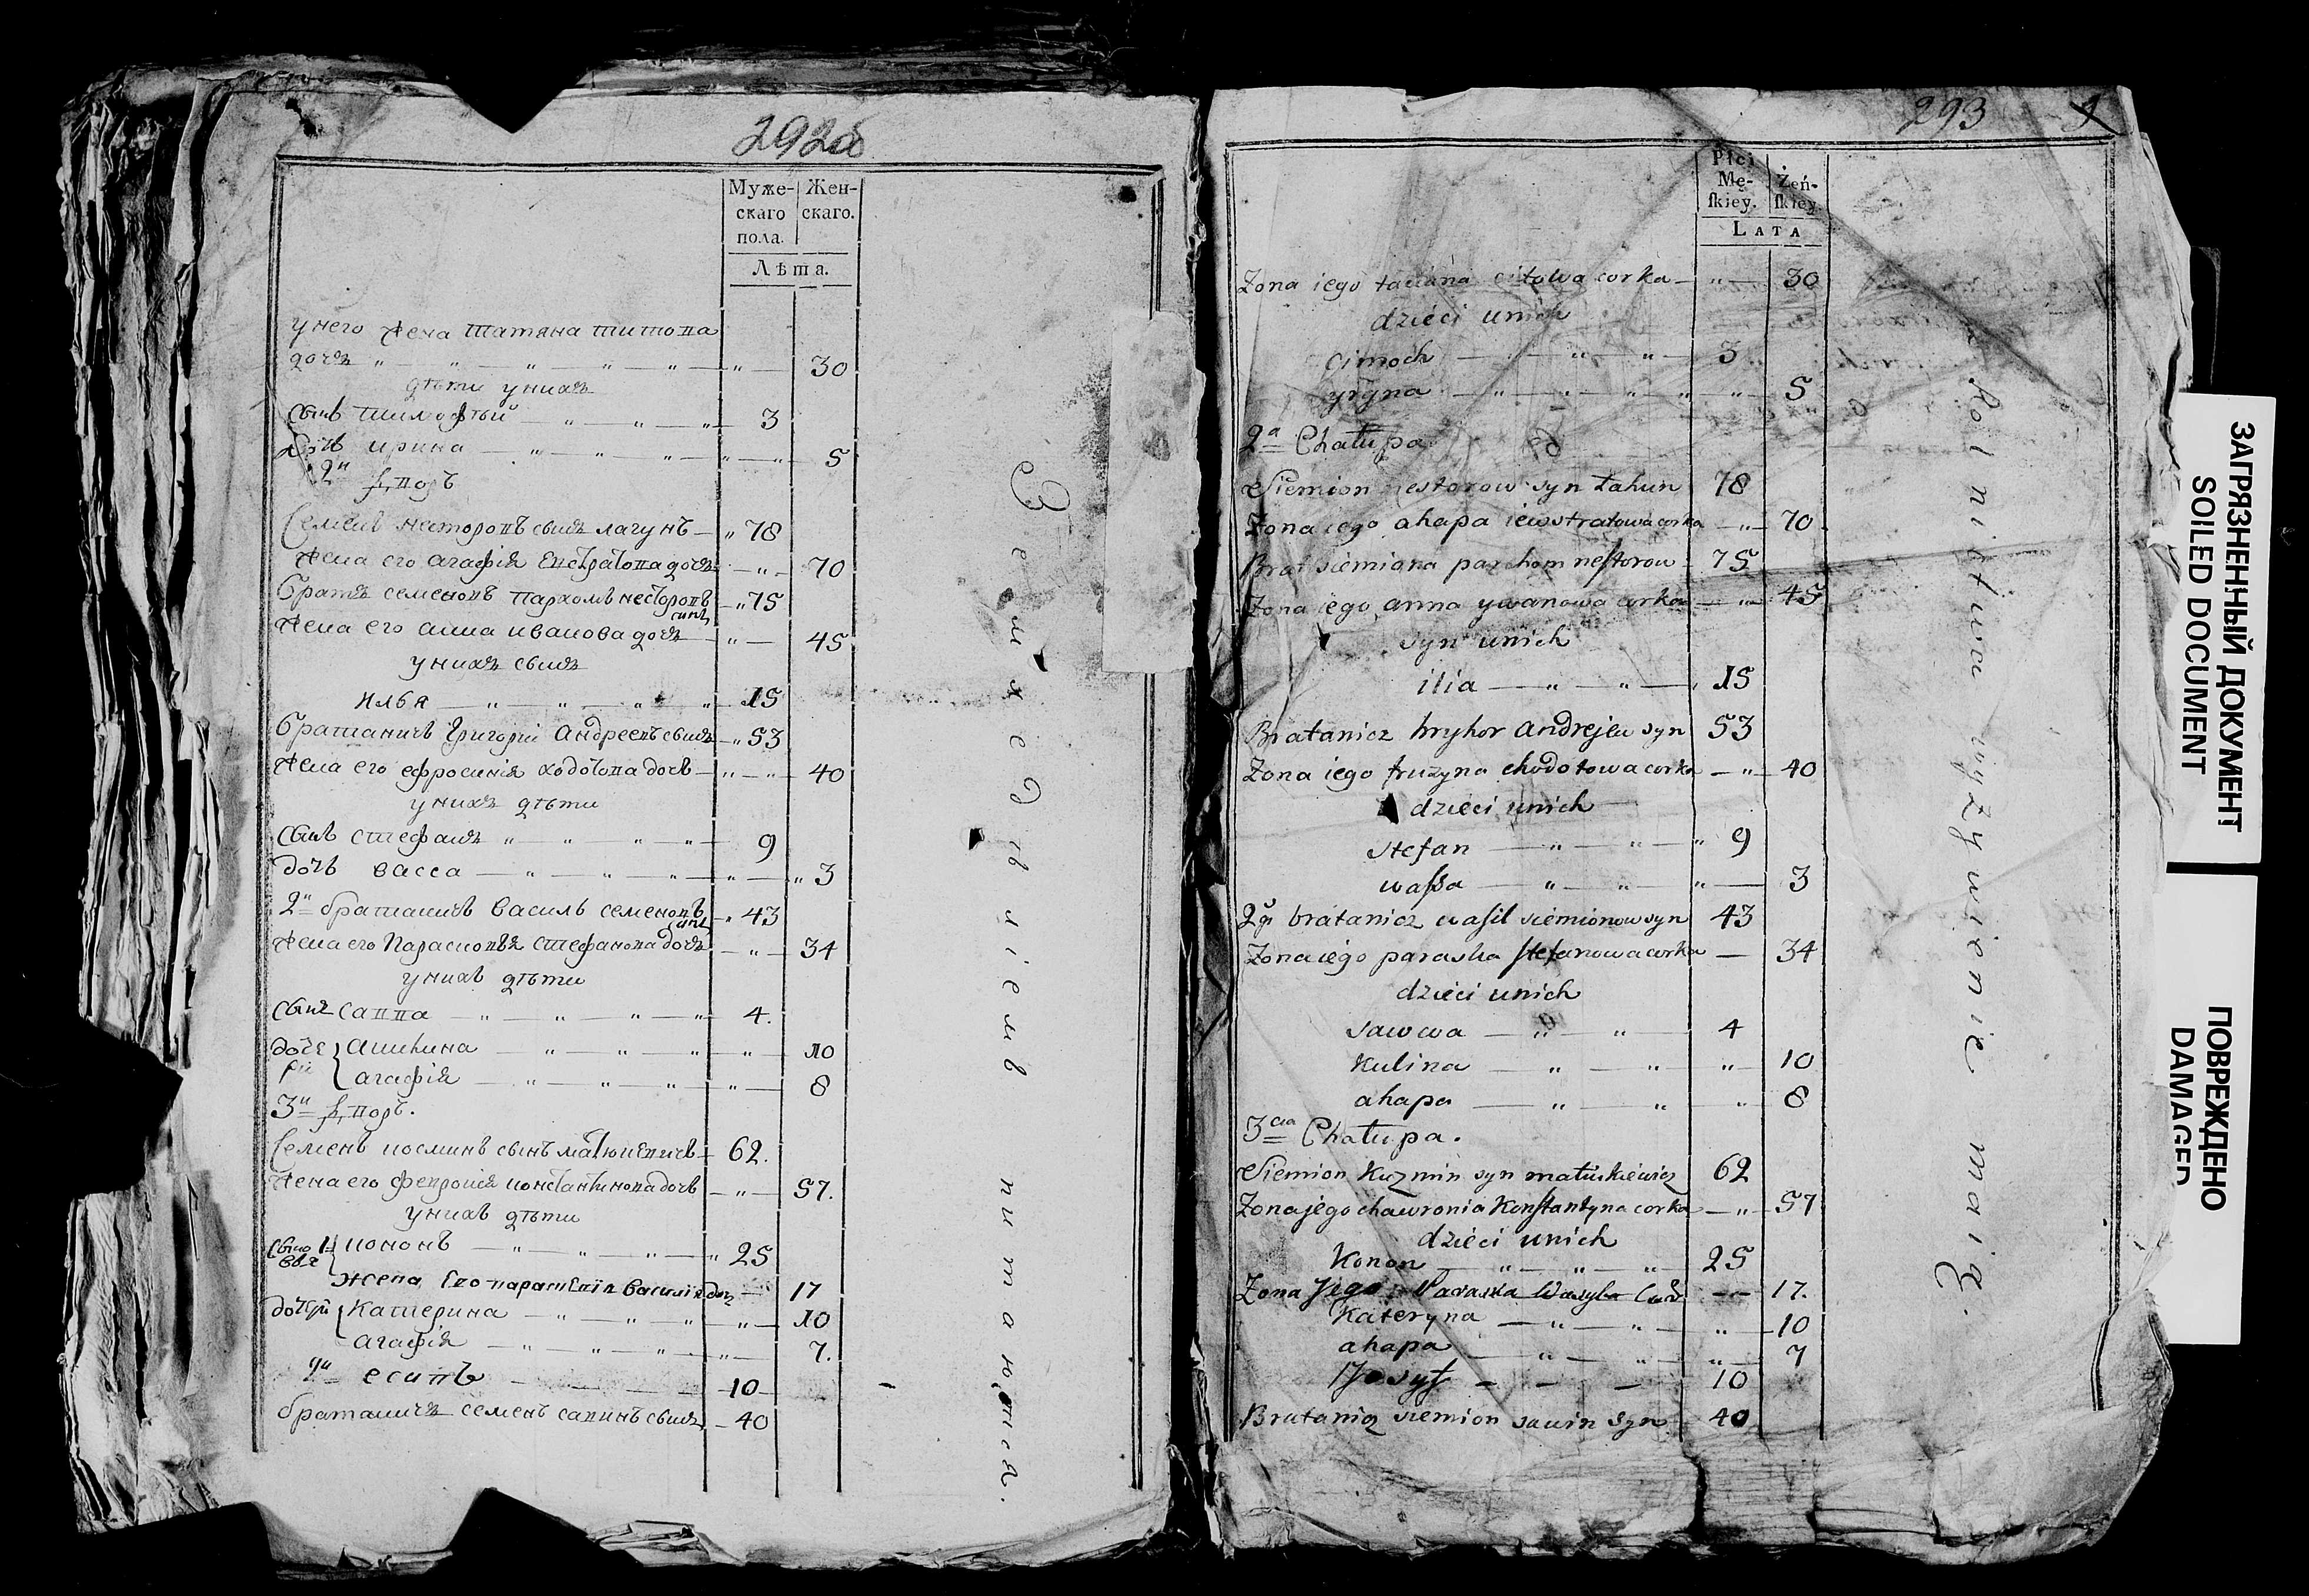 292об
Муже-
скаго
пола.
Жен-
скаго.
Лѣта.
у него жена татяна титова
дочь " — " — " — " — " — " — 30
дѣти у нихъ
сынъ тимофѣй — " — " — " — 3
дочь ирина — " — " — " — " — " — 5
2й дворъ
Семенъ несторовъ сынъ лагунъ — " 78
жена его агафія евстратова дочь — " — 70
братъ семеновъ пархомъ несторовъ сынъ — " 75
жена его анна иванова дочь — " — 45
у нихъ сынъ
илья — " — " — " — " 15
братаничъ григорій андреевъ сынъ — " 53
жена его ефросинія ходотова дочь — " — " — 40
у нихъ дѣти
сынъ стефанъ " — " — " — " — 9
дочь васса — " — " — " — " — " 3
2й братаничъ василь семеновъ сынъ — " 43
жена его парасковья стефанова дочь — " — 34
у нихъ дѣти
сынъ савва — " — " — " — " — 4.
доче акилина — " — " — " — " — 10
ри агафія — " — " — " — " — 8
3й дворъ.
Семенъ козминъ сынъ матюкевичъ — 62.
жена его февронія константинова дочь — " — 57.
у нихъ дѣти
сыно 1й кононъ — " — " — " — " 25
вья
жена его параскевія василія доч — 17
дочери катерина — " — " — " — " — 10
агафія — " — " — " — " — 7.
2й есипъ — 10
братаничъ семенъ савинъ сынъ — 40
Земледѣліемъ питаются.
293
Płci
Mę-
ſkiey.
Żeń-
ſkiey.
LATA
Zona iego taciana citowa corka — " — 30
dzieci unich
cimoch — " — " — " — 3
yryna — " — " — " — " — " — 5
2a Chałupa
Siemion nestorow syn Łahun 78
Zona iego ahapa iewstratowa corka — " — 70
Brat siemiona parchom neſtorow 75
Zona iego anna ywanowa corka — " — 45
syn unich
ilia — " — " — 15
Bratanicz hryhor andrejew syn 53
Zona iego fruzyna chodotowa corka — " — 40
dzieci unich
stefan — " — " — " 9
waſsa — " — " — " — 3
2gi bratanicz waſil siemionow syn 43
Zona iego paraska ſtefanowa corka — 34
dzieci unich
sawwa — " — " — 4
Kulina — " — " — " — 10
ahapa — " — " — " 8
3cia Chałupa.
Siemion Kuzmin syn matiuskiewicz 62
Zona jego chawronia Konſtantyna corka — " — 57
dzieci unich
Konon — " — " — " 25
Zona Jego Paraska Wasyla Cor — 17.
Kateryna — " — " — " — 10
ahapa — " — " — " — 7
Josyf — — — 10
Bratanicz siemion sawin syn 40
Rolnictwa wyżywienie maią.
ЗАГРЯЗНЕННЫЙ ДОКУМЕНТ
SOILED DOCUMENT
ПОВРЕЖДЕНО
DAMAGED